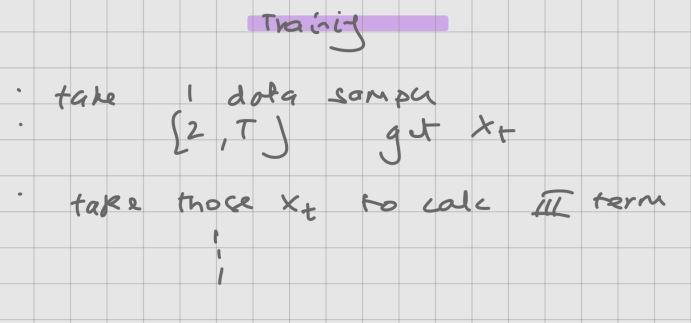 Training
· take 1 data sample
· [2, T] get x_t
· take those x_t to calc III term